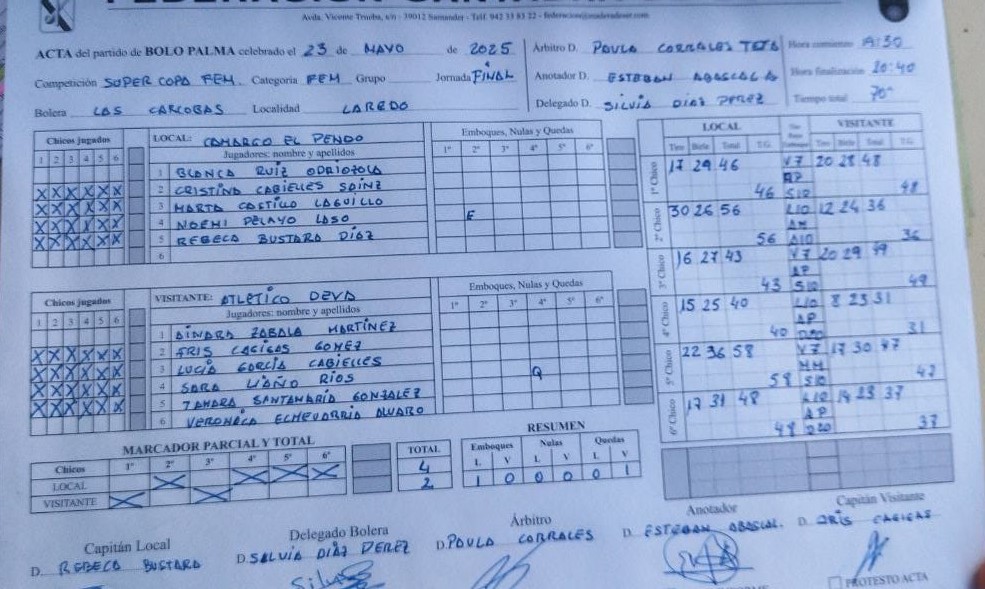 FEDERACIÓN
Avda. Vicente Trueba, s/n · 39012 Santander - Telf. 942 33 83 22 -
ACTA del partido de BOLO PALMA celebrado el 23 de MAYO de 2025
Competición SUPER COPA FEM. Categoría FEM Grupo Jornada FINAL
Bolera LAS CARCOBAS Localidad LAREDO
Árbitro D. PAULA CORRALES
Anotador D. ESTEBAN ABASCAL
Delegado D. SILVIA DIAZ PEREZ
Hora comienzo 19:30
Hora finalización 20:40
Tiempo total 70"
Chicos jugados
1 2 3 4 5 6
LOCAL: CAMARGO EL PENDO
Jugadores: nombre y apellidos
Emboques, Nulas y Quedas
1º 2º 3º 4º 5º 6º
1 BLANCA RUIZ ODRIOZOLA
X X X X X X 2 CRISTINA CABIELLES SAINZ
X X X X X X 3 MARTA CASTILLO LAGUILLO
X X X X X X 4 NOEMI PELAYO LASO E
X X X X X X 5 REBECA BUSTARA DÍAZ
6
Chicos jugados
1 2 3 4 5 6
VISITANTE: ATLETICO DEVA
Jugadores: nombre y apellidos
Emboques, Nulas y Quedas
1º 2º 3º 4º 5º 6º
1 AINARA ZABALA MARTÍNEZ
X X X X X X 2 IRIS CAGIGAS GOMEZ
X X X X X X 3 LUCÍA GARCÍA CABIELLES
X X X X X X 4 SARA LIAÑO RÍOS Q
X X X X X X 5 TAMARA SANTAMARÍA GONZALEZ
6 VERONICA ECHEVARRIA ALVARO
LOCAL VISITANTE
Tiro Birle Total T.G. Tiro Birle Total T.G.
1º Chico 17 29 46 V7 20 28 48
46 S10 48
2º Chico 30 26 56 L10 12 24 36
56 A10 36
3º Chico 16 27 43 V7 20 29 49
AP
43 S10 49
4º Chico 15 25 40 L10 8 23 31
AP
40 31
5º Chico 22 36 58 V7 17 30 47
MM
58 S10 47
6º Chico 17 31 48 L10 14 23 37
AP
48 37
MARCADOR PARCIAL Y TOTAL
Chicos 1º 2º 3º 4º 5º 6º TOTAL
LOCAL X X X X 4
VISITANTE X X 2
RESUMEN
Emboques Nulas Quedas
L V L V L V
1 0 0 0 0 1
Capitán Local
D. REBECA BUSTARA
Delegado Bolera
D. SILVIA DÍAZ PEREZ
Árbitro
D. PAULA CORRALES
Anotador
D. ESTEBAN ABASCAL.
Capitán Visitante
D. IRIS CAGIGAS
PROTESTO ACTA